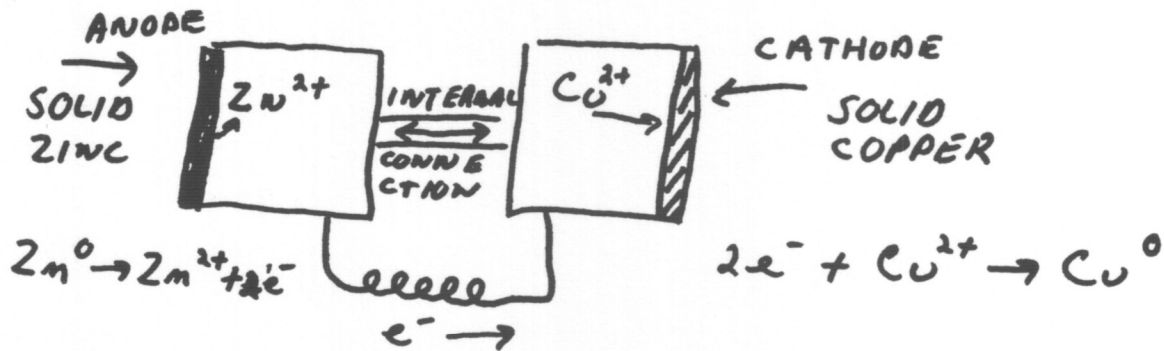 ANODE
SOLID
ZINC
Zn²⁺
INTERNAL
CONNE
CTION
Cu²⁺
CATHODE
SOLID
COPPER
Zn⁰ → Zn²⁺ + 2e⁻
e⁻ →
2e⁻ + Cu²⁺ → Cu⁰